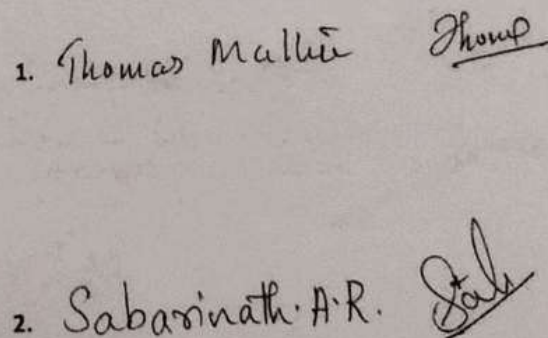 1. Thomas Mathew Thomas
2. Sabarinath. A. R. Sab